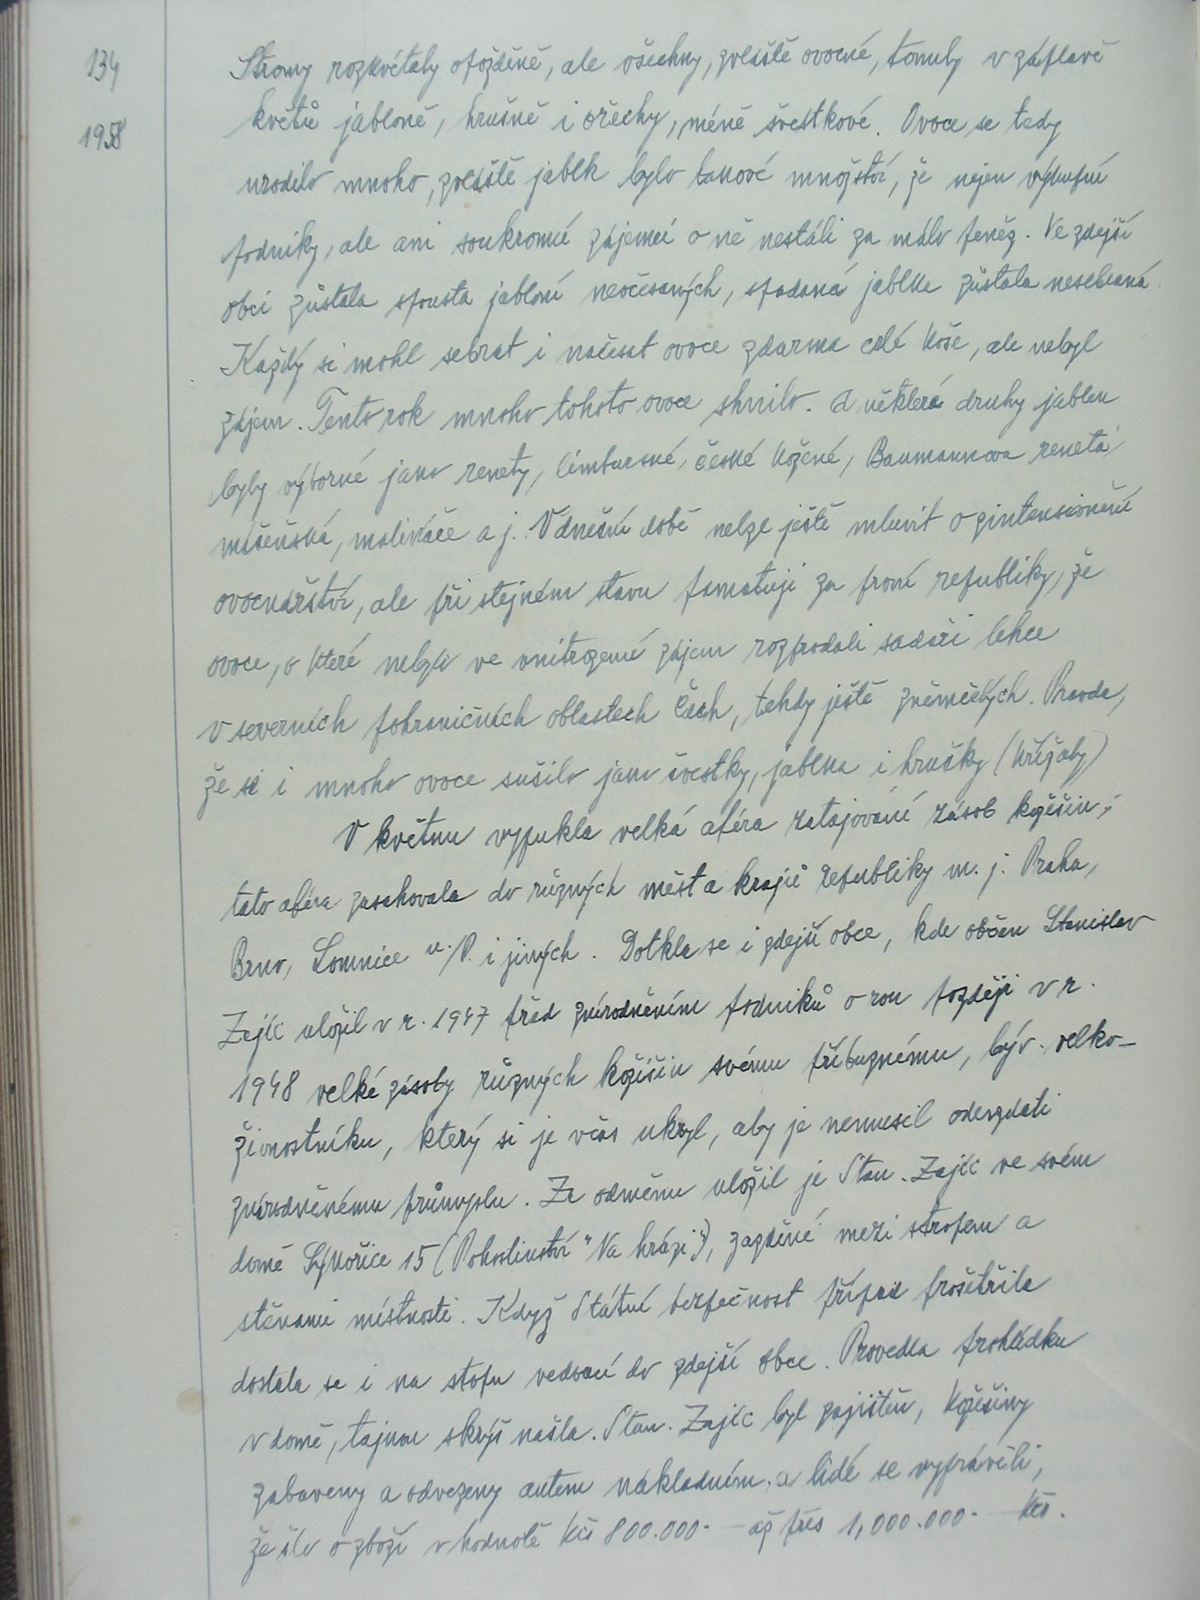 134
1958
Stromy rozkvétaly opožděně, ale všechny, zvláště ovocné, tonuly v záplavě
květů jabloně, hrušně i ořechy, méně švestkové. Ovoce se tedy
urodilo mnoho, zvláště jablk bylo takové množství, že nejen výkupní
podniky, ale ani soukromí zájemci o ně nestáli za málo peněz. Ve zdejší
obci zůstala spousta jabloní neočesaných, spadaná jablka zůstala nesebraná.
Každý si mohl sebrat i načesat ovoce zdarma celé koše, ale nebyl
zájem. Tento rok mnoho tohoto ovoce shnilo. A některé druhy jablek
byly výborné jako renety, limburské, české kožené, Baumannova reneta
míšeňská, malináče a j. V dnešní době nelze ještě mluvit o zintensivnění
ovocnářství, ale při stejném stavu pamatuji za první republiky, že
ovoce, o které nebylo ve vnitrozemí zájem rozprodali sadaři lehce
v severních pohraničních oblastech Čech, tehdy ještě zněmčelých. Pravda,
že se i mnoho ovoce sušilo jako švestky, jablka i hrušky (křížaly)
V květnu vypukla velká aféra zatajování zásob kožešin;
tato aféra zasahovala do různých měst a krajů republiky m. j. Praha,
Brno, Lomnice n./P. i jiných. Dotkla se i zdejší obce, kde občan Stanislav
Zajíc uložil v r. 1947 před znárodněním podniků o rok později v r.
1948 velké zásoby různých kožišin svému příbuznému, býv. velko-
živnostníku, který si je včas ukryl, aby je nemusil odevzdati
znárodněnému průmyslu. Za odměnu uložil je Stan. Zajíc ve svém
domě Sýkořice 15 (Pohostinství "Na hrázi"), zazděné mezi stropem a
stěnami místnosti. Když Státní bezpečnost případ prošetřila
dostala se i na stopu vedoucí do zdejší obce. Provedla prohlídku
v domě, tajnou skrýš našla. Stan. Zajíc byl zajištěn, kožešiny
zabaveny a odvezeny autem nákladním, a lidé se vyprávěli,
že šlo o zboží v hodnotě Kčs 800.000.- až přes 1,000.000.- Kčs.